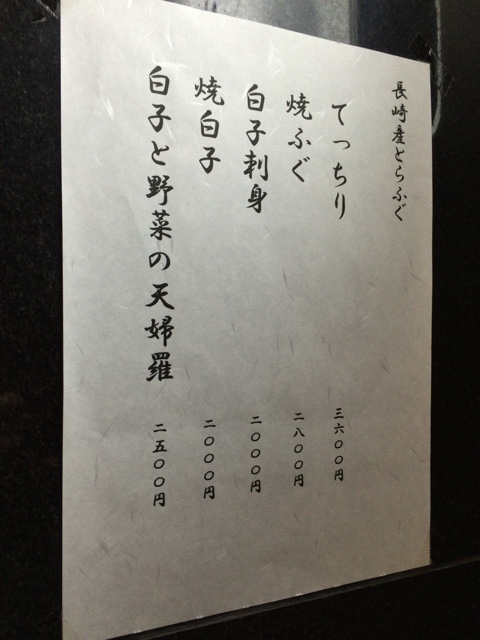 長崎産とらふぐ
てっちり 三六〇〇円
焼ふぐ 二八〇〇円
白子刺身 二〇〇〇円
焼白子 二〇〇〇円
白子と野菜の天婦羅 二五〇〇円